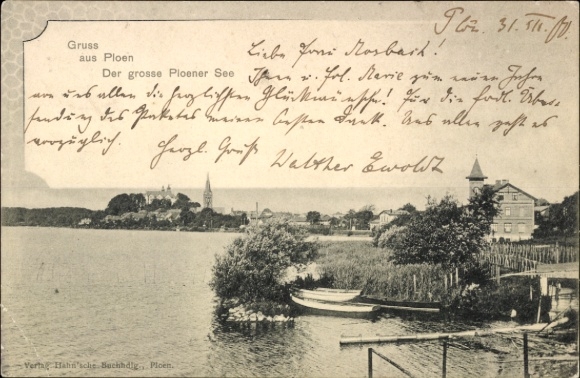 Gruss
aus Ploen
Der grosse Ploener See
Plön, 31. XII.
Liebe Frau Mosbach!
Ihnen u. Frl. Marie zum neuen Jahre
von uns allen die herzlichsten Glückwünsche! Für die frdl. Über-
sendung des Paketes meinen besten Dank. Uns allen geht es
vorzüglich. Herzl. Gruß
Walther Ewoldt
Verlag Hahn'sche Buchhdlg., Ploen.